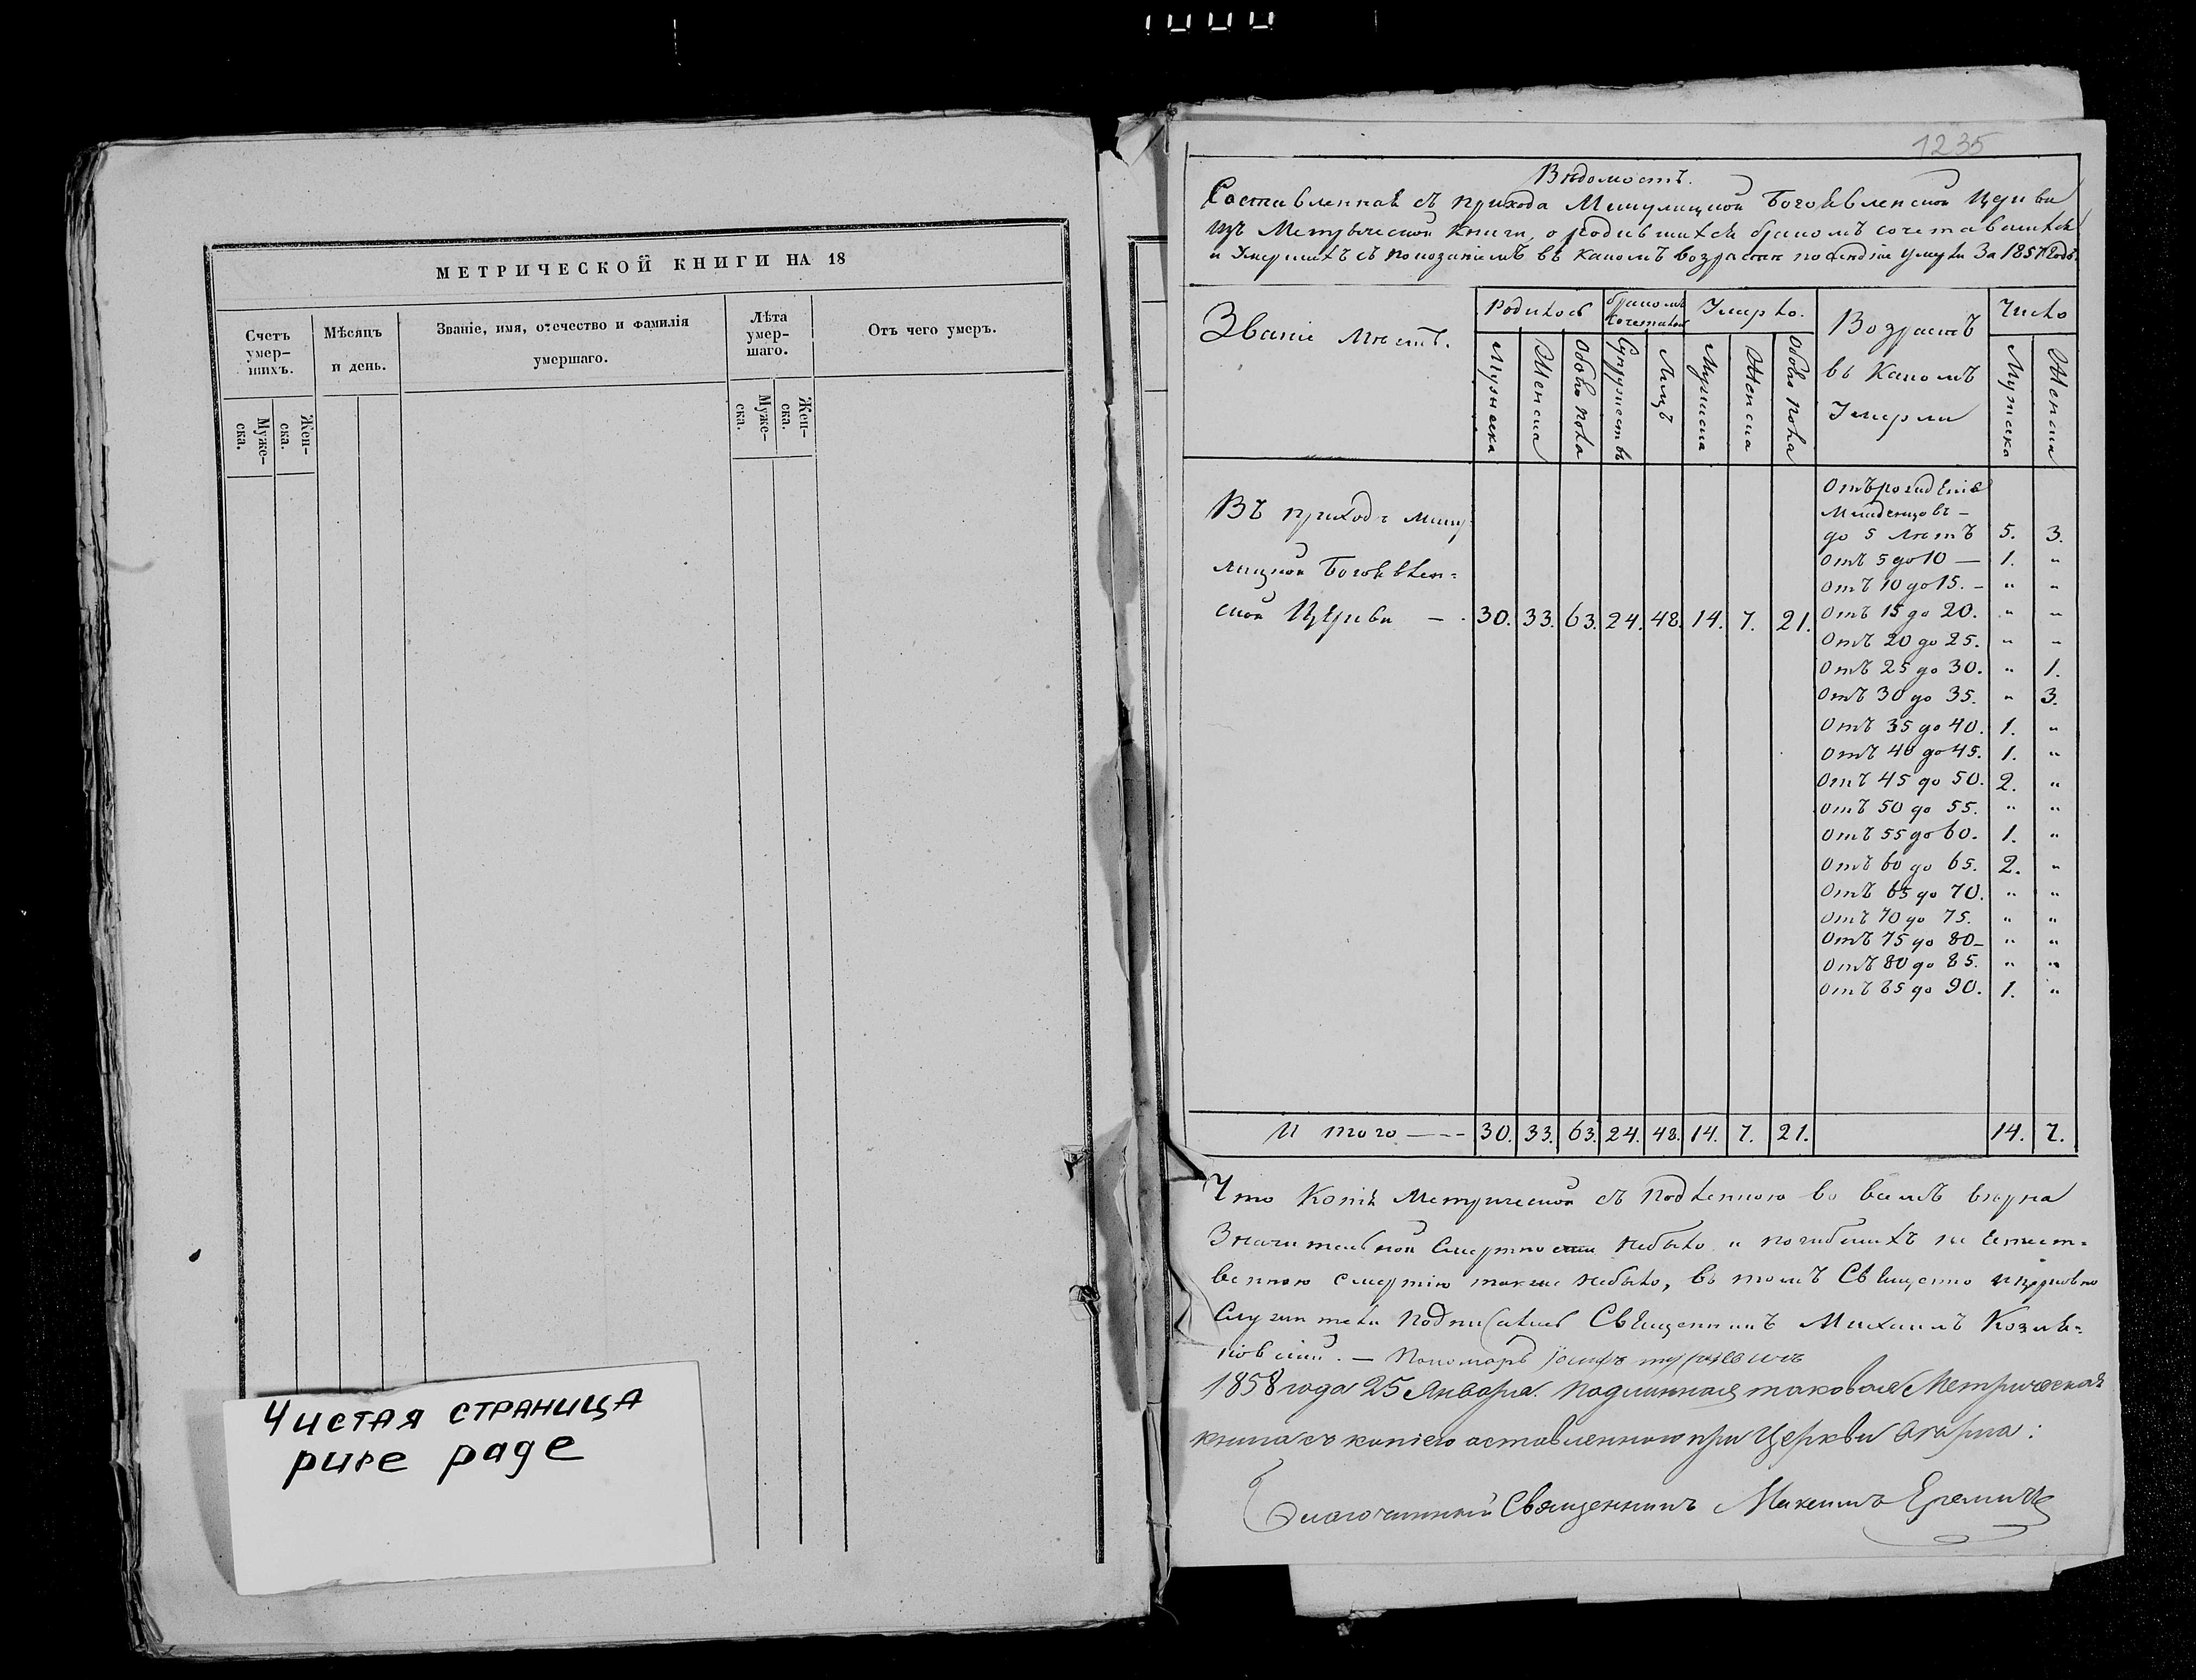 МЕТРИЧЕСКОЙ КНИГИ НА 18
Счетъ умер-шихъ.
Мѣсяцъ и день.
Званіе, имя, отечество и фамилія умершаго.
Лѣта умер-шаго.
Отъ чего умеръ.
Муже-ска.
Жен-ска.
Муже-ска.
Жен-ска.
Чистая страница
pure page
1235
Вѣдомость.
Составленная съ прихода Богоявленской Церкви
изъ Метрической Книги, о родившихся бракомъ сочетавшихся
и Умершихъ съ показаніемъ въ какомъ возрастѣ За 1857 Годъ.
Званіе Мѣстъ.
Родилось
бракомъ Сочеталось
Умерло.
Возрастъ
въ Какомъ
Умерли
Число
Мужеска
Женска
Обоего пола
Супружествъ
Лицъ
Мужеска
Женска
Обоего пола
Мужска
Женска
Въ приходѣ
Богоявлен=
ской Церкви — . 30. 33. 63. 24. 48. 14. 7. 21.
Отъ рожденія
Младенцовъ —
до 5 Лѣтъ 5. 3.
Отъ 5 до 10 — 1. "
Отъ 10 до 15. — " "
Отъ 15 до 20. " "
Отъ 20 до 25. " "
Отъ 25 до 30. " 1.
Отъ 30 до 35. " 3.
Отъ 35 до 40. 1. "
Отъ 40 до 45. 1. "
Отъ 45 до 50. 2. "
Отъ 50 до 55. " "
Отъ 55 до 60. 1. "
Отъ 60 до 65. 2. "
Отъ 65 до 70. " "
Отъ 70 до 75. " "
Отъ 75 до 80 — " "
Отъ 80 до 85. " "
Отъ 85 до 90. 1. "
И того — 30. 33. 63. 24. 48. 14. 7. 21. 14. 7.
Что Копія Метрической съ Подленною во всемъ вѣрна
Значительной Смертности небыло и погибшихъ не Естест-
венною смертію также небыло, въ томъ Священно и церковно
Служители Подписались Священникъ Михаилъ
Пономарь
1858 года 25 Января. Подлинная таковая Метрическая
книга съ копіею оставленною при Церкви
Благочинный Священникъ